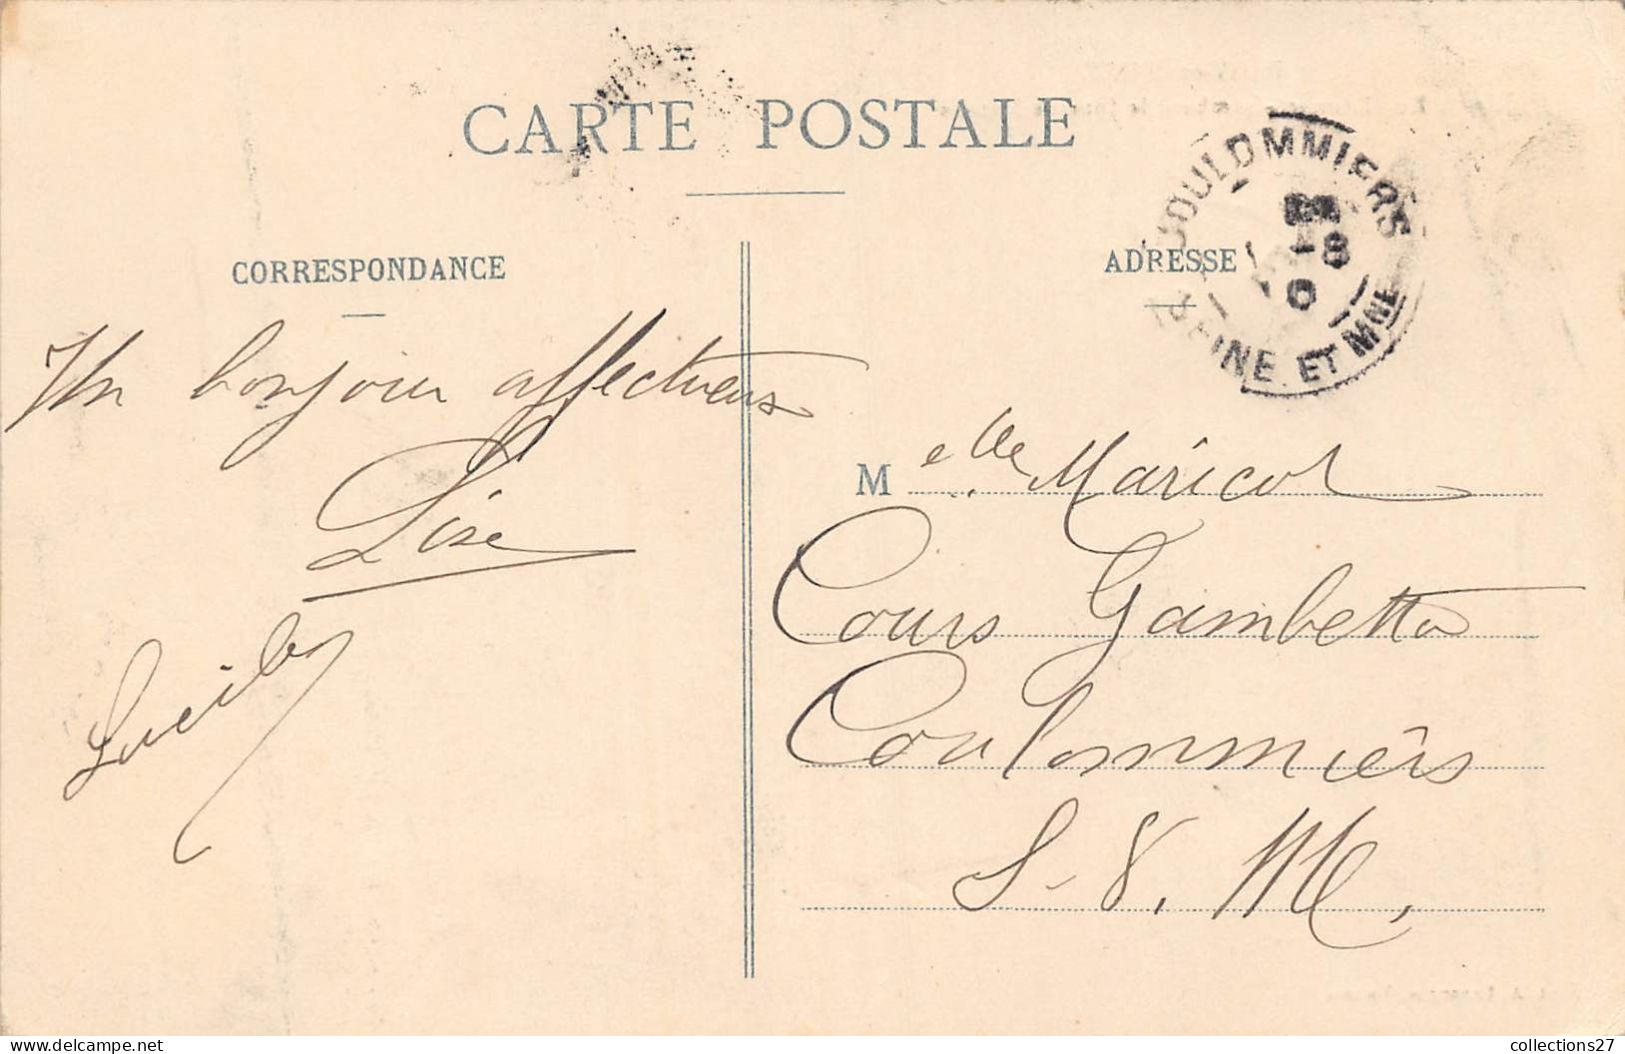 CARTE POSTALE
CORRESPONDANCE
Un bonjour affectueux
Lise
Lucile
ADRESSE
COULOMMIERS
-8
0
SEINE ET MNE
Melle Maricot
Cours Gambetta
Coulommiers
S-&. M.
collections27